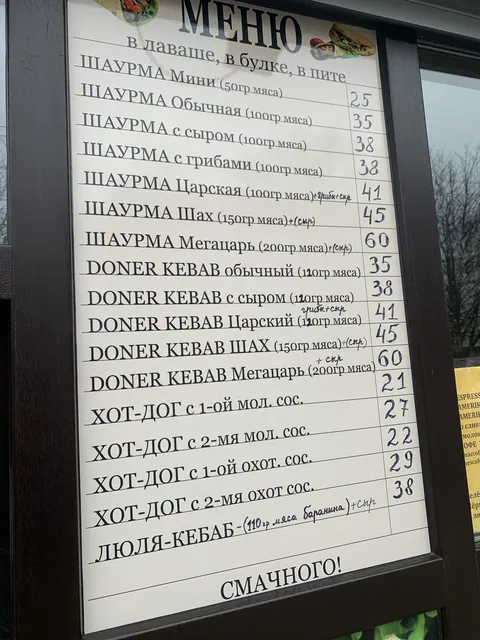 МЕНЮ
в лаваше, в булке, в пите
ШАУРМА Мини (50гр мяса) 25
ШАУРМА Обычная (100гр мяса) 35
ШАУРМА с сыром (100гр мяса) 38
ШАУРМА с грибами (100гр мяса) 38
ШАУРМА Царская (100гр мяса)+грибы+сыр 41
ШАУРМА Шах (150гр мяса)+(сыр) 45
ШАУРМА Мегацарь (200гр мяса)+(сыр) 60
DONER KEBAB обычный (110гр мяса) 35
DONER KEBAB с сыром (110гр мяса) 38
грибы+сыр
DONER KEBAB Царский (110гр мяса) 41
DONER KEBAB ШАХ (150гр мяса)+(сыр) 45
+ сыр
DONER KEBAB Мегацарь (200гр мяса) 60
ХОТ-ДОГ с 1-ой мол. сос. 21
ХОТ-ДОГ с 2-мя мол. сос. 27
ХОТ-ДОГ с 1-ой охот. сос. 22
ХОТ-ДОГ с 2-мя охот сос. 29
ЛЮЛЯ-КЕБАБ-(110гр мяса баранина)+сыр 38
СМАЧНОГО!